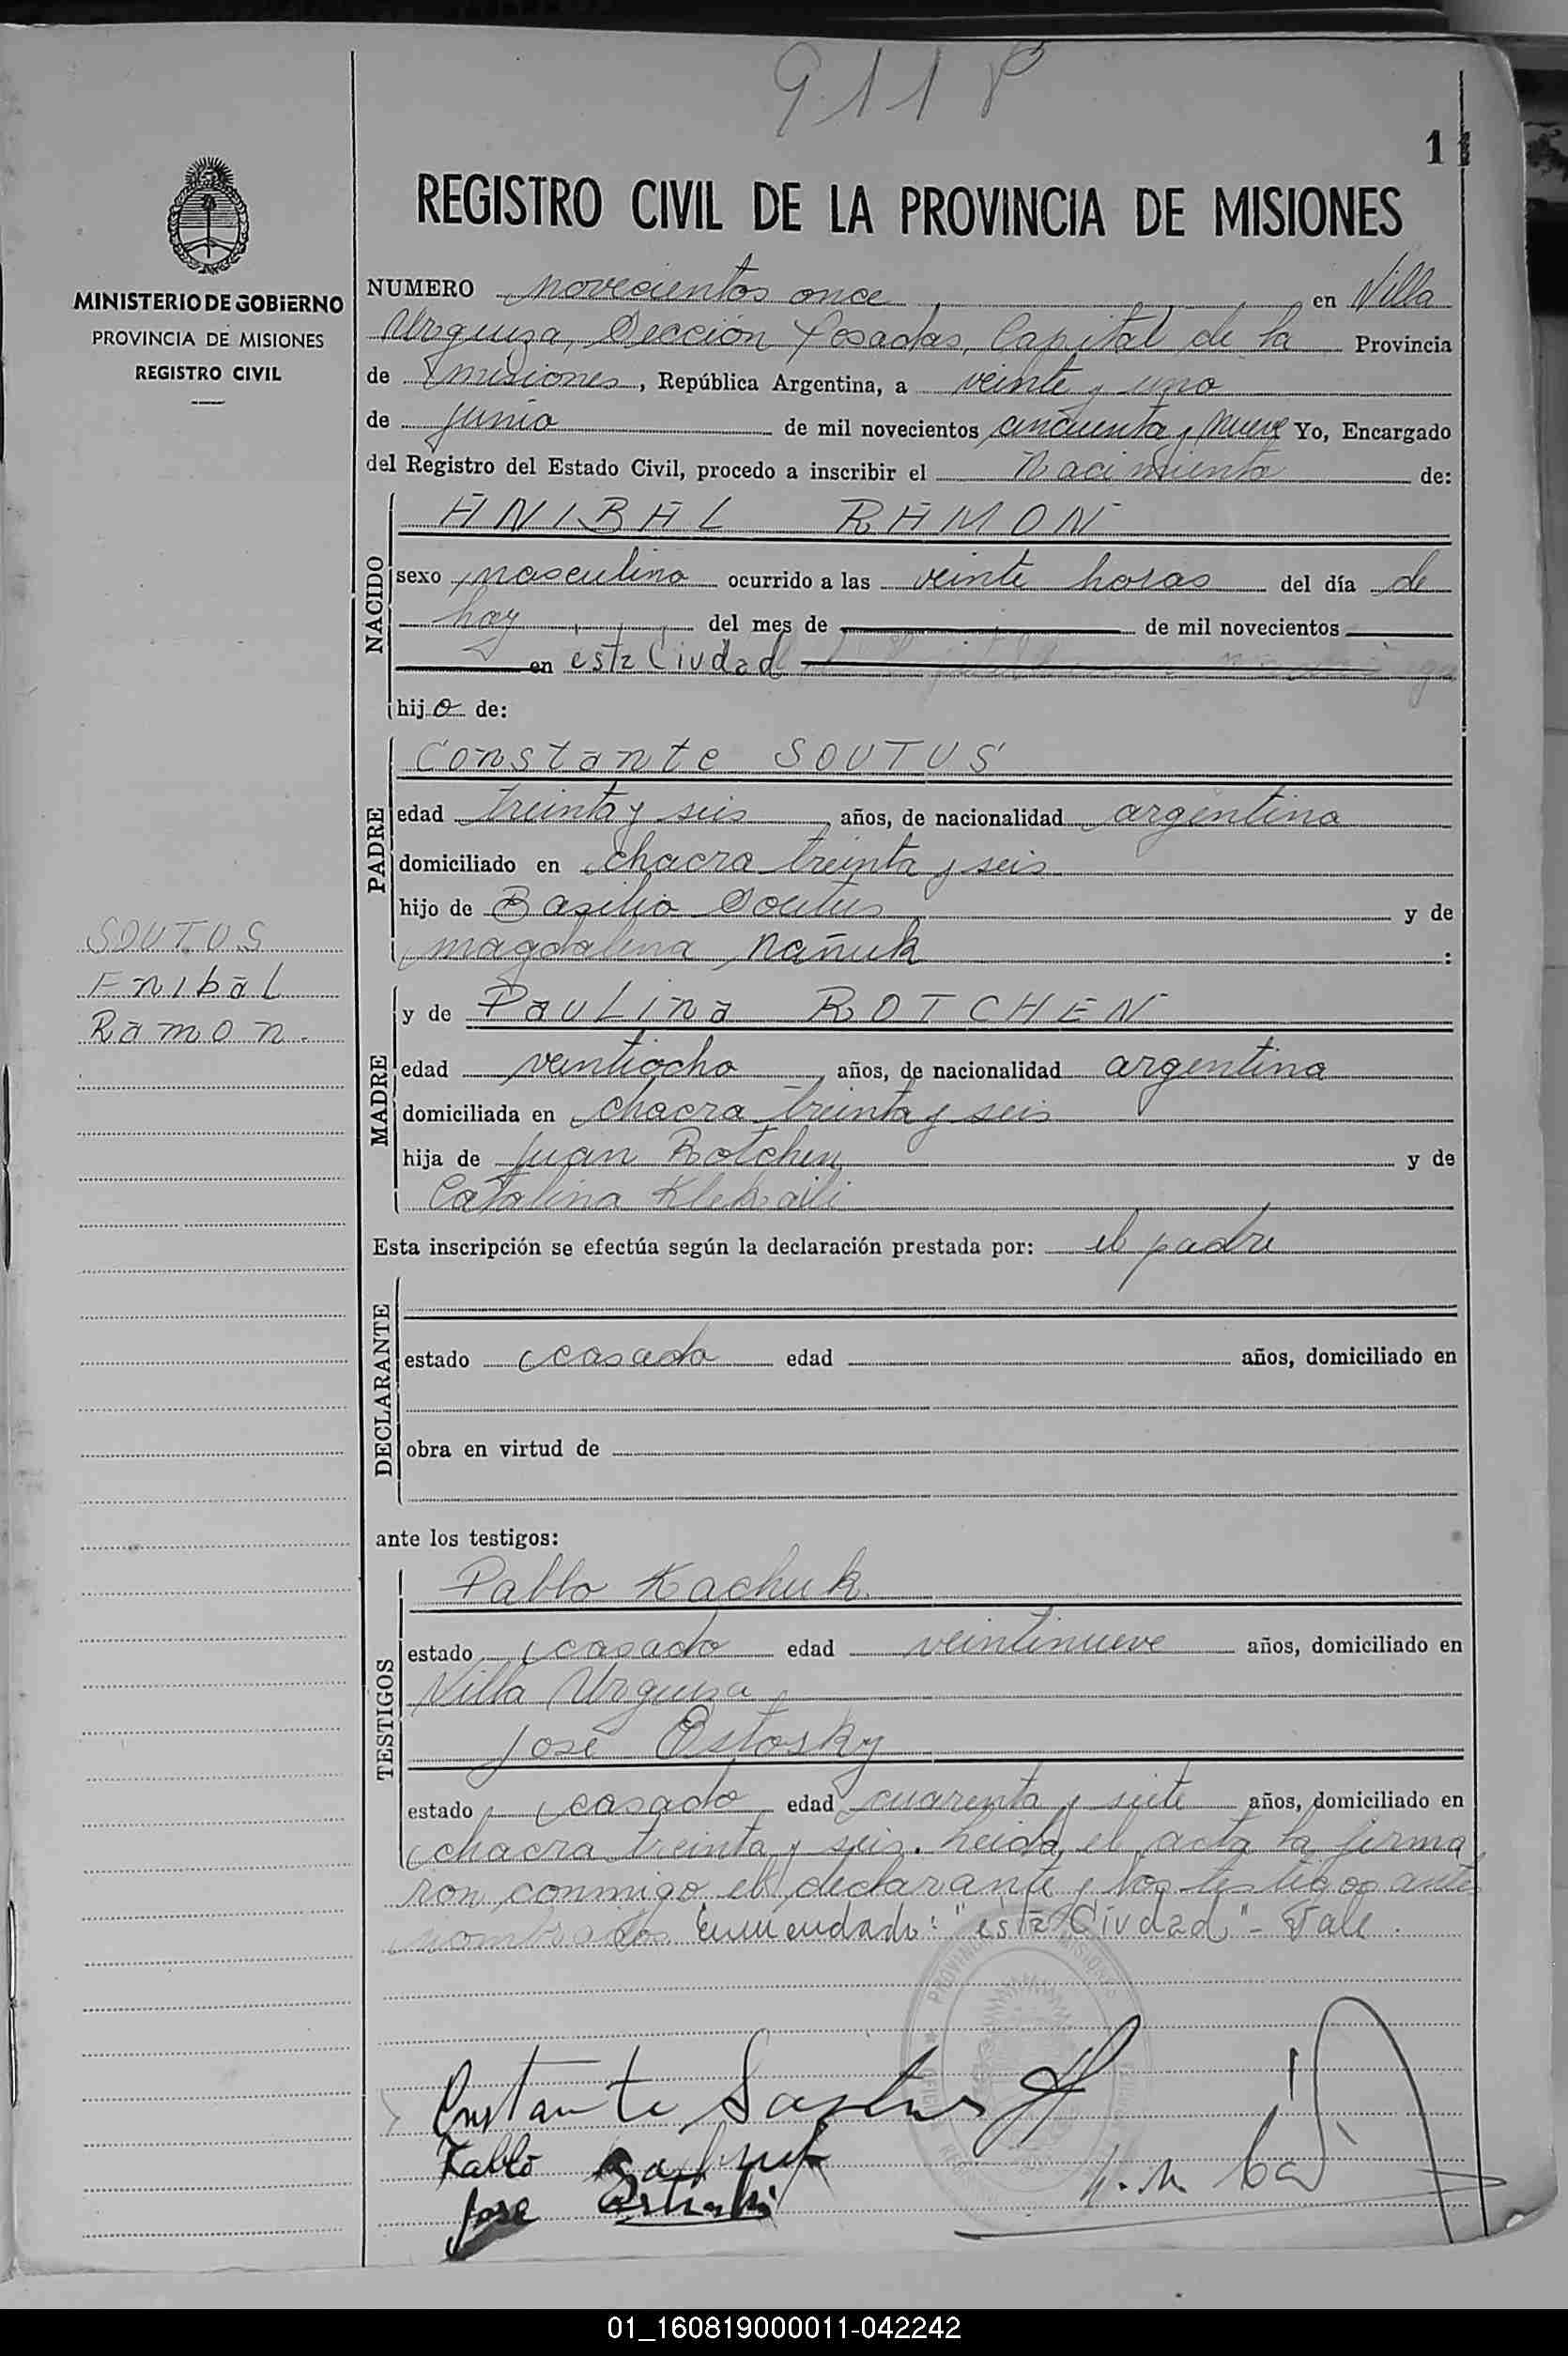 911
1
REGISTRO CIVIL DE LA PROVINCIA DE MISIONES
MINISTERIO DE GOBIERNO
PROVINCIA DE MISIONES
REGISTRO CIVIL
NUMERO novecientos once en Villa
Urquiza, Sección Posadas, Capital de la Provincia
de Misiones, República Argentina, a veinte y uno
de junio de mil novecientos cincuenta y nueve Yo, Encargado
del Registro del Estado Civil, procedo a inscribir el Nacimiento de:
NACIDO
ANIBAL RAMON
sexo masculino ocurrido a las veinte horas del día de
hoy del mes de de mil novecientos
en esta Ciudad
hijo de:
PADRE
Constante SOUTUS
edad treinta y seis años, de nacionalidad argentina
domiciliado en chacra treinta y seis
hijo de Basilio Soutus y de
magdalena Nañuk :
SOUTUS
Anibal
Ramon.
MADRE
y de Paulina ROTCHEN
edad veintiocho años, de nacionalidad argentina
domiciliada en chacra treinta y seis
hija de Juan Rotchen y de
Catalina Klekaili
Esta inscripción se efectúa según la declaración prestada por: el padre
DECLARANTE
estado casado edad años, domiciliado en
obra en virtud de
ante los testigos:
TESTIGOS
Pablo Kachuk
estado casado edad veintinueve años, domiciliado en
Villa Urquiza
José Ostosky
estado casado edad cuarenta y siete años, domiciliado en
chacra treinta y seis. Leida el acta la firma
ron conmigo el declarante y los testigos ante
nombrados Enmendado: "esta Ciudad" - Vale.
Constante Soutus
Pablo Kachuk
Jose
01_160819000011-042242